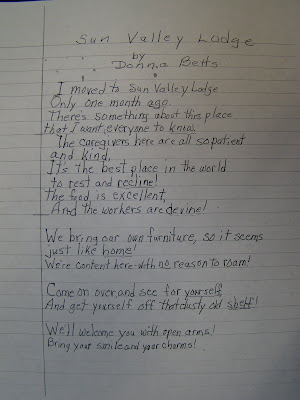 Sun Valley Lodge
by
Donna Betts
I moved to Sun Valley Lodge
Only one month ago.
Theres something about this place
that I want everyone to know.
The caregivers here are all so patient
and kind,
It's the best place in the world
to rest and recline!
The food is excellent,
And the workers are devine!
We bring our own furniture, so it seems
just like home!
We're content here with no reason to roam!
Come on over, and see for yourself,
And get yourself off that dusty old shelf!
We'll welcome you with open arms!
Bring your smile and your charms!